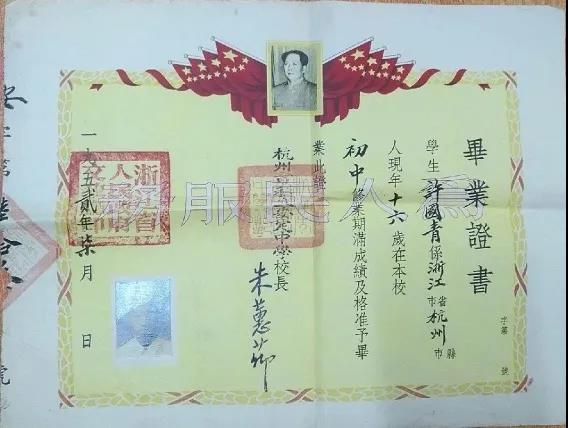 畢業證書
學生許國青係浙江省杭州縣
市 市
人現年十六歲在本校
初中修業期滿成績及格准予畢
業此證
杭州 中學校長
朱蕙
一九五贰年柒月 日
字第 號
為人民服務
浙江省人民政府
字第
號